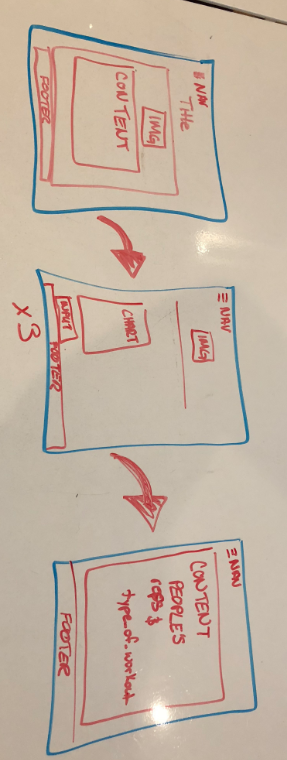 ≡ NAV
Title
IMG
CONTENT
FOOTER
≡ NAV
IMG
CHART
INPUT
FOOTER
x 3
≡ NAV
CONTENT
PEOPLE'S
reps &
type_of_workout
FOOTER